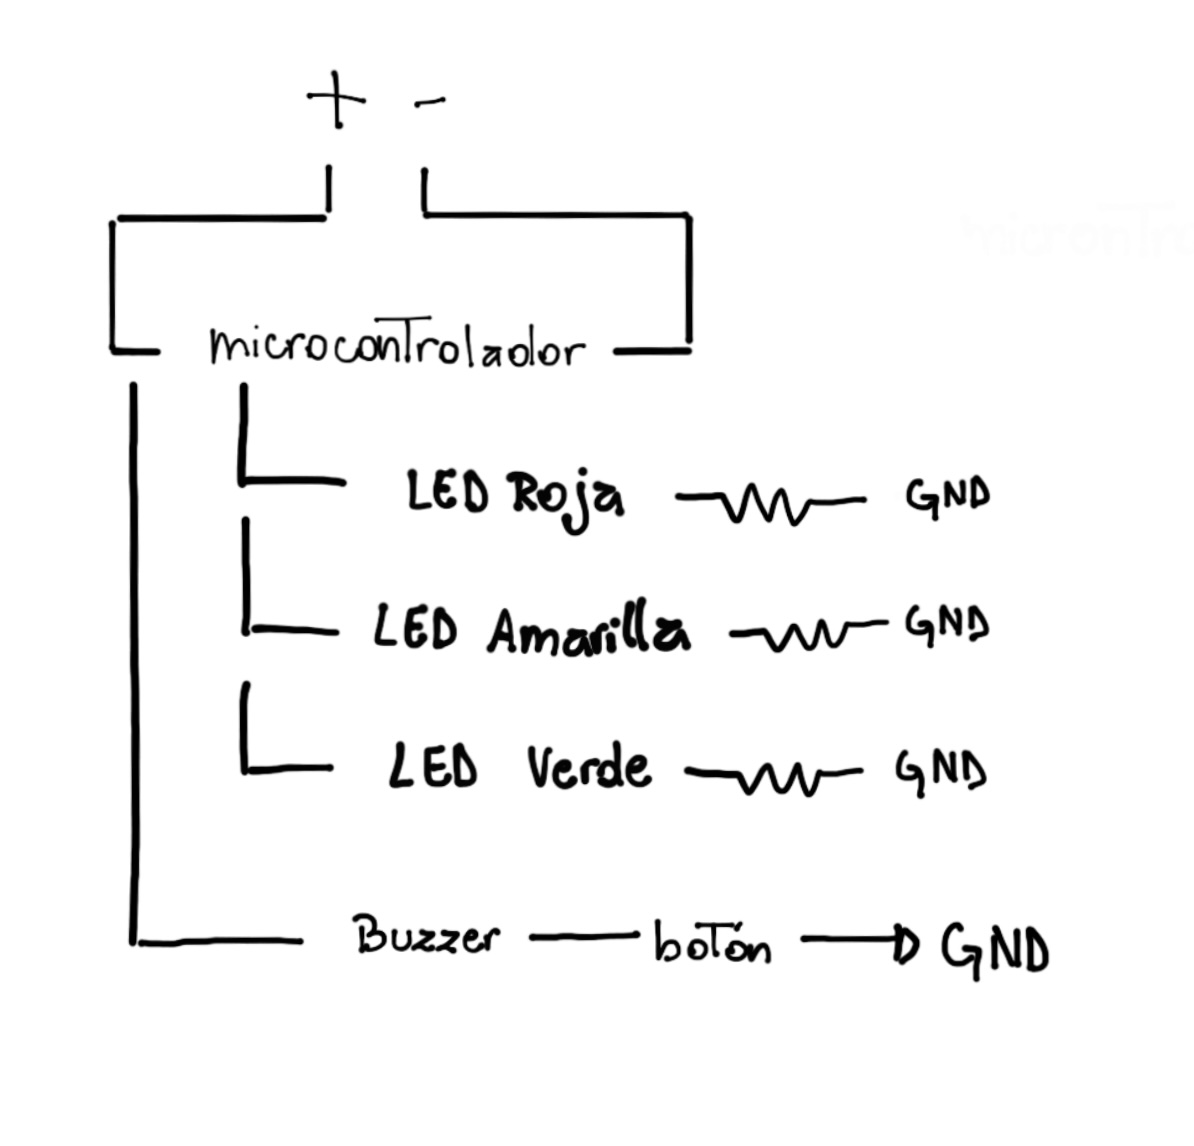 + -
microcontrolador
LED Roja GND
LED Amarilla GND
LED Verde GND
Buzzer botón GND